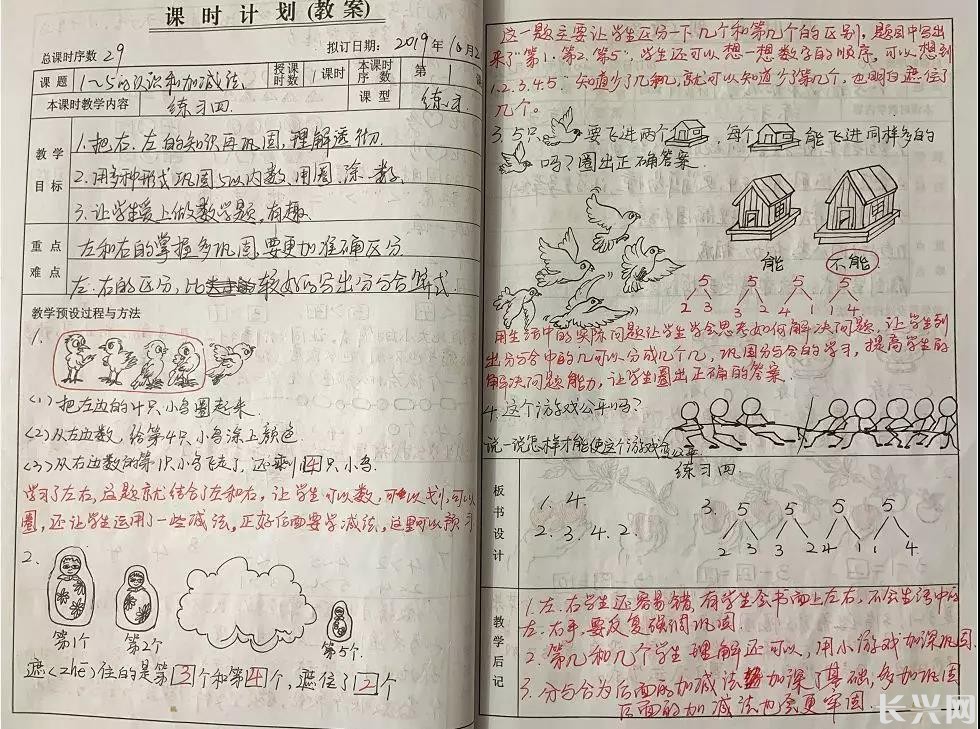 课时计划(教案)
总课时序数 29
拟订日期：2019年10月2
课题 1~5的认识和加减法
授课时数 1课时
本课时序数 第1
本课时教学内容 练习四
课型 练习
教学目标
1.把右、左的知识再巩固,理解透彻.
2.用多种形式巩固5以内数,用圈、涂、数.
3.让学生爱上做数学题,有趣.
重点难点
左和右的掌握多巩固,要更加准确区分
左、右的区分,比较好的写出分与合算式.
教学预设过程与方法
1.
(1)把左边的4只小鸟圈起来.
(2)从左边数,给第4只小鸟涂上颜色.
(3)从右边数的第1只小鸟飞走了,还剩4只小鸟.
学习了左右,这题就结合了左和右,让学生可以数,可以划,可以
圈,还让学生运用了一些减法,正好后面要学减法,这里可以预习
2.
第1个 第2个 第5个.
遮<zhē>住的是第3个和第4个,遮住了2个
这一题主要让学生区分一下几个和第几个的区别,题目中写出
来了"第1、第2、第5",学生还可以想一想数字的顺序,可以想到
1.2.3.4.5.知道少了几和几,就可以知道少了第几个,也明白遮住了
几个.
3.5只 要飞进两个 ,每个 能飞进同样多的
吗?圈出正确答案.
能 不能
5 5 5 5
2 3 3 2 4 1 1 4
用生活中的实际问题让学生学会思考如何解决问题,让学生列
出分与合中的几可以分成几个几,巩固分与合的学习,提高学生的
解决问题能力,让学生圈出正确的答案.
4.这个游戏公平吗?
说一说怎样才能使这个游戏公平
板书设计
练习四
1. 4.
2. 3. 4. 2.
3. 5 5 5 5
2 3 3 2 4 1 1 4
教学后记
1.左、右学生还容易错,有学生会书面上左右,不会生活中的
左、右手,要反复强调巩固.
2.第几和几个学生理解还可以,用小游戏加深巩固.
3.分与合为后面的加减法加深了基础,多加巩固
后面的加减法也会更牢固.
长兴网